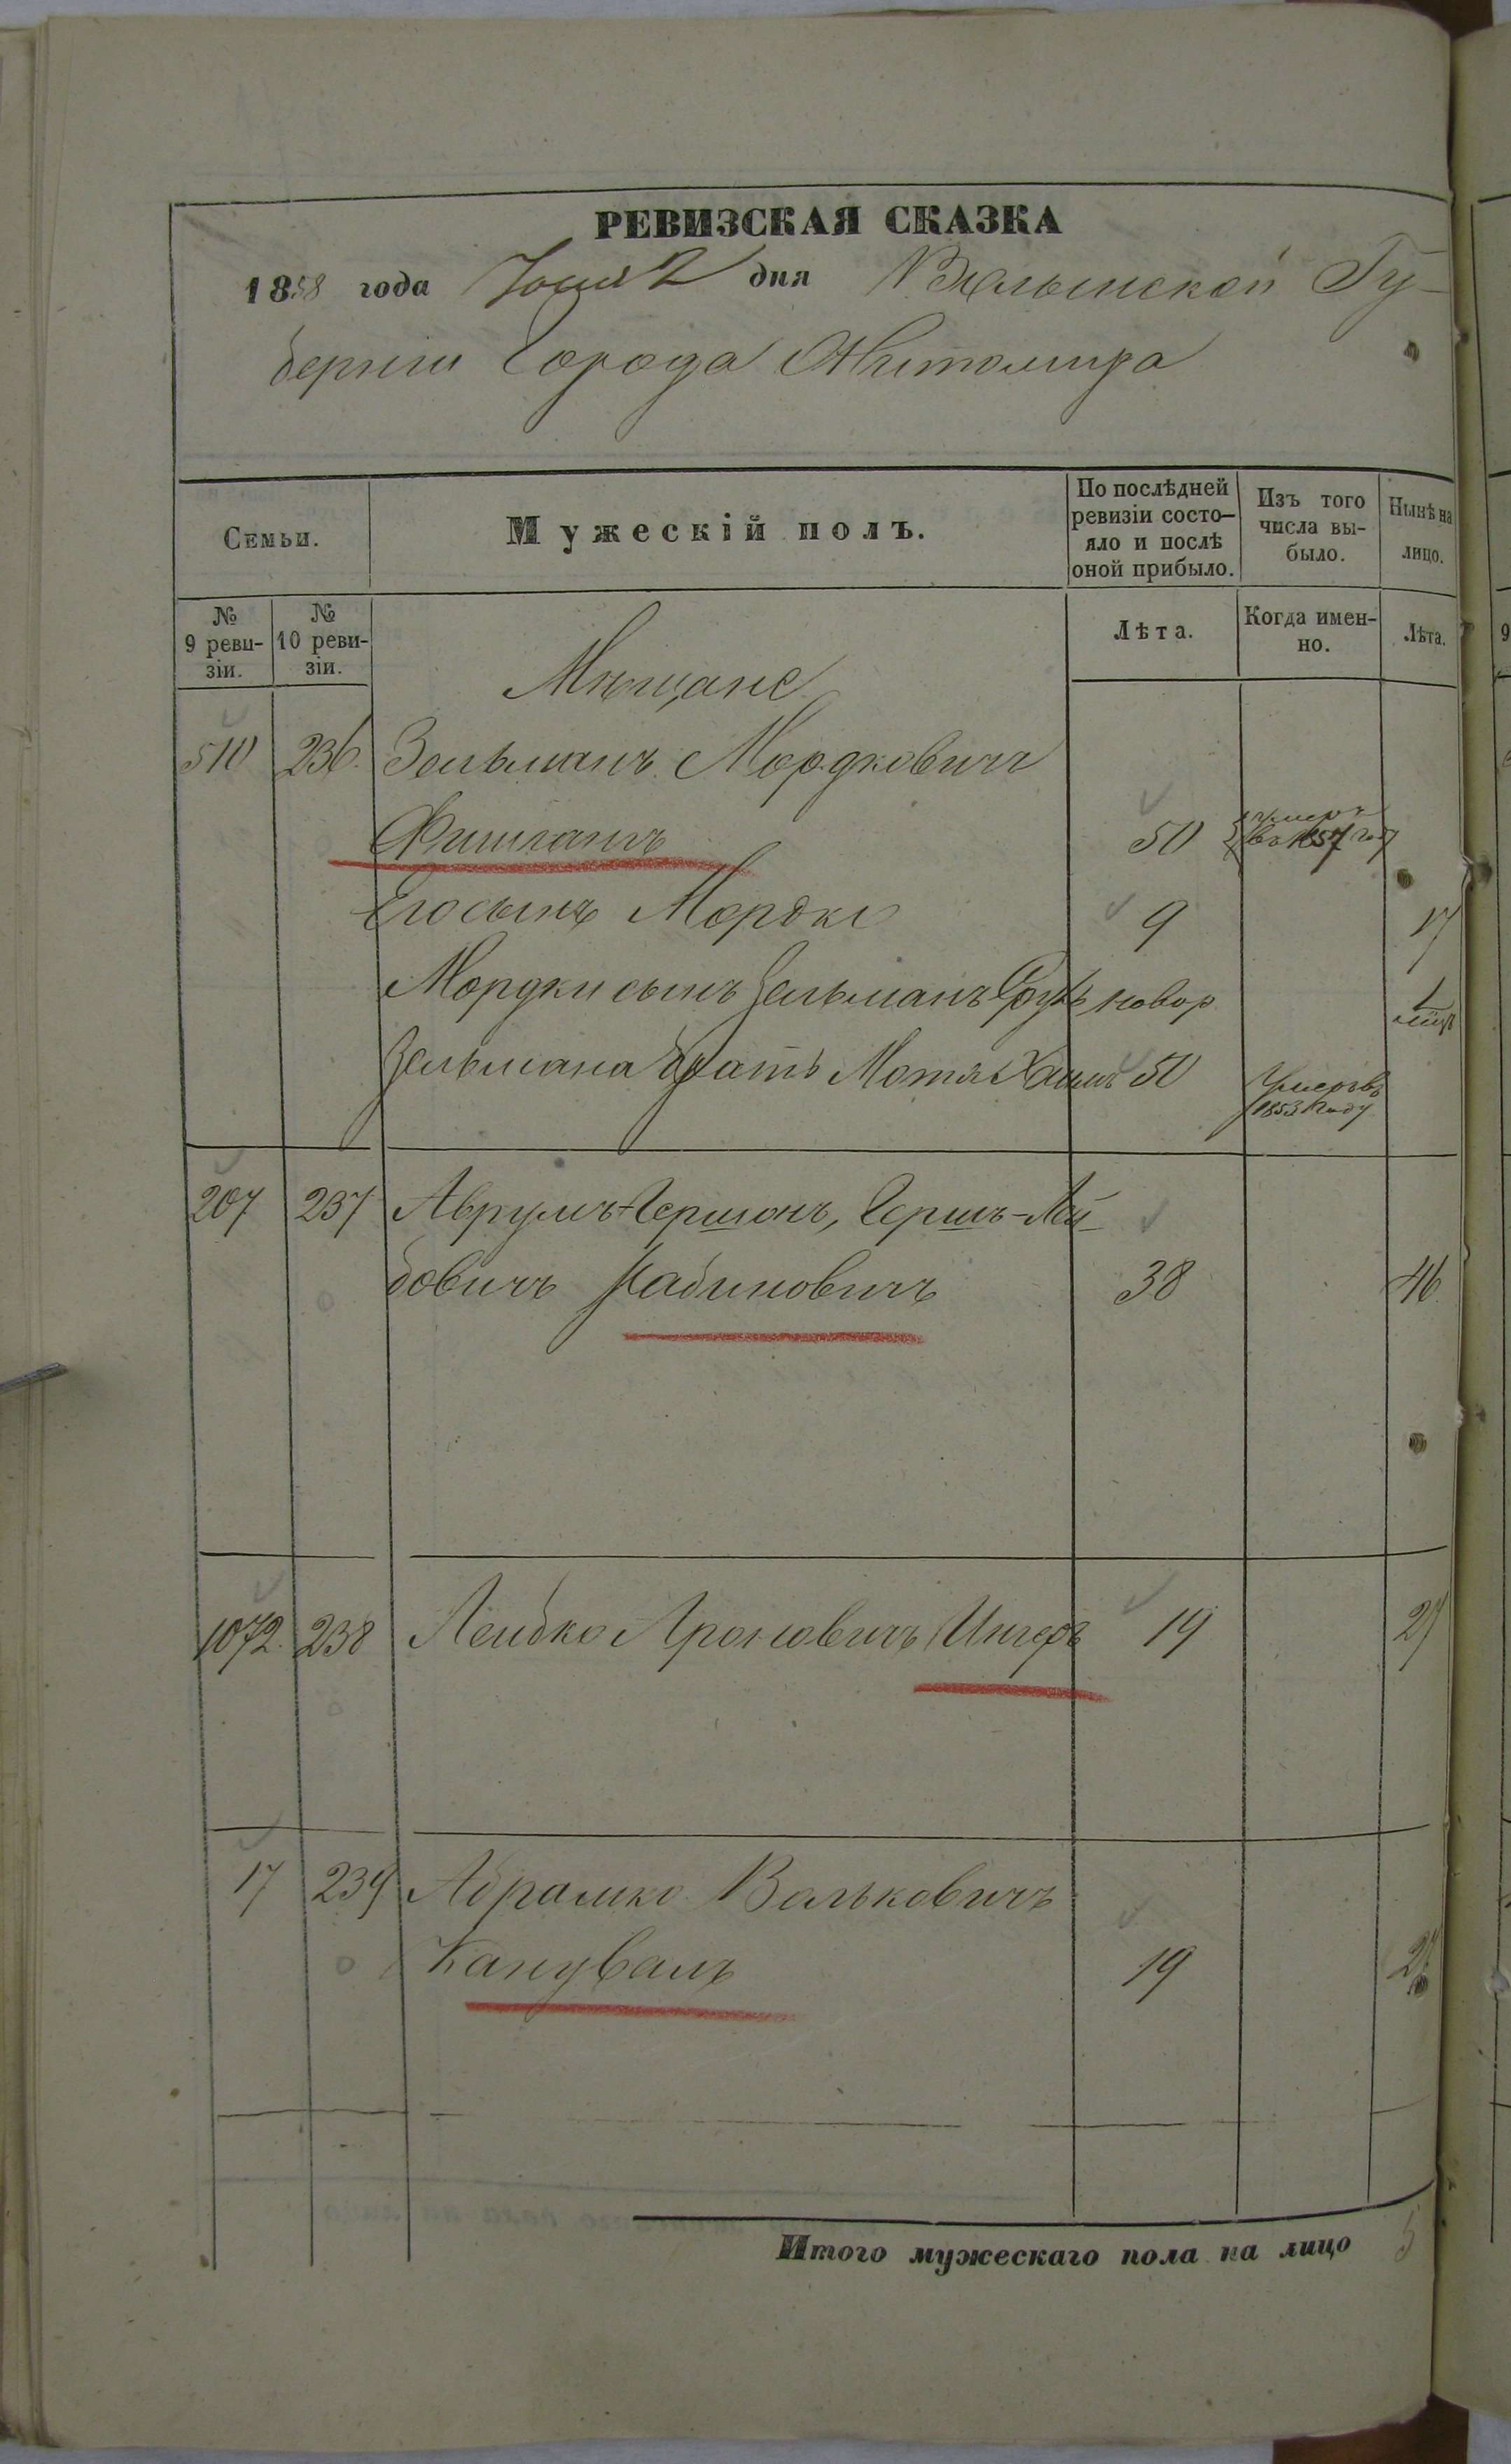 РЕВИЗСКАЯ СКАЗКА
1858 года Іюня 2 дня Волынской Гу-
берніи Города Житомира
Семьи.
Мужескій полъ.
По послѣдней ревизіи состо-яло и послѣ оной прибыло.
Изъ того числа вы-было.
Нынѣ на лицо.
№ 9 реви-зіи.
№ 10 реви-зіи.
Лѣта.
Когда имен-но.
Лѣта.
Мѣщане
510 236 Зельманъ Мордковичъ
Фишманъ 50 умеръ въ 1857 году
Его сынъ Мордко 9 17
Мордки сынъ Зельманъ новор 1
Зельмана братъ Мотя Хаимъ 50 Умеръ въ 1853 году
207 237 Аврумъ-Гершонъ, Гершъ-Лей-
бовичъ Рабиновичъ 38 46
1072 238 Лейбко Ароновичъ Ингеръ 19 27
17 239 Абрамко Вольковичъ
Канувалъ 19 27
Итого мужескаго пола на лицо 5